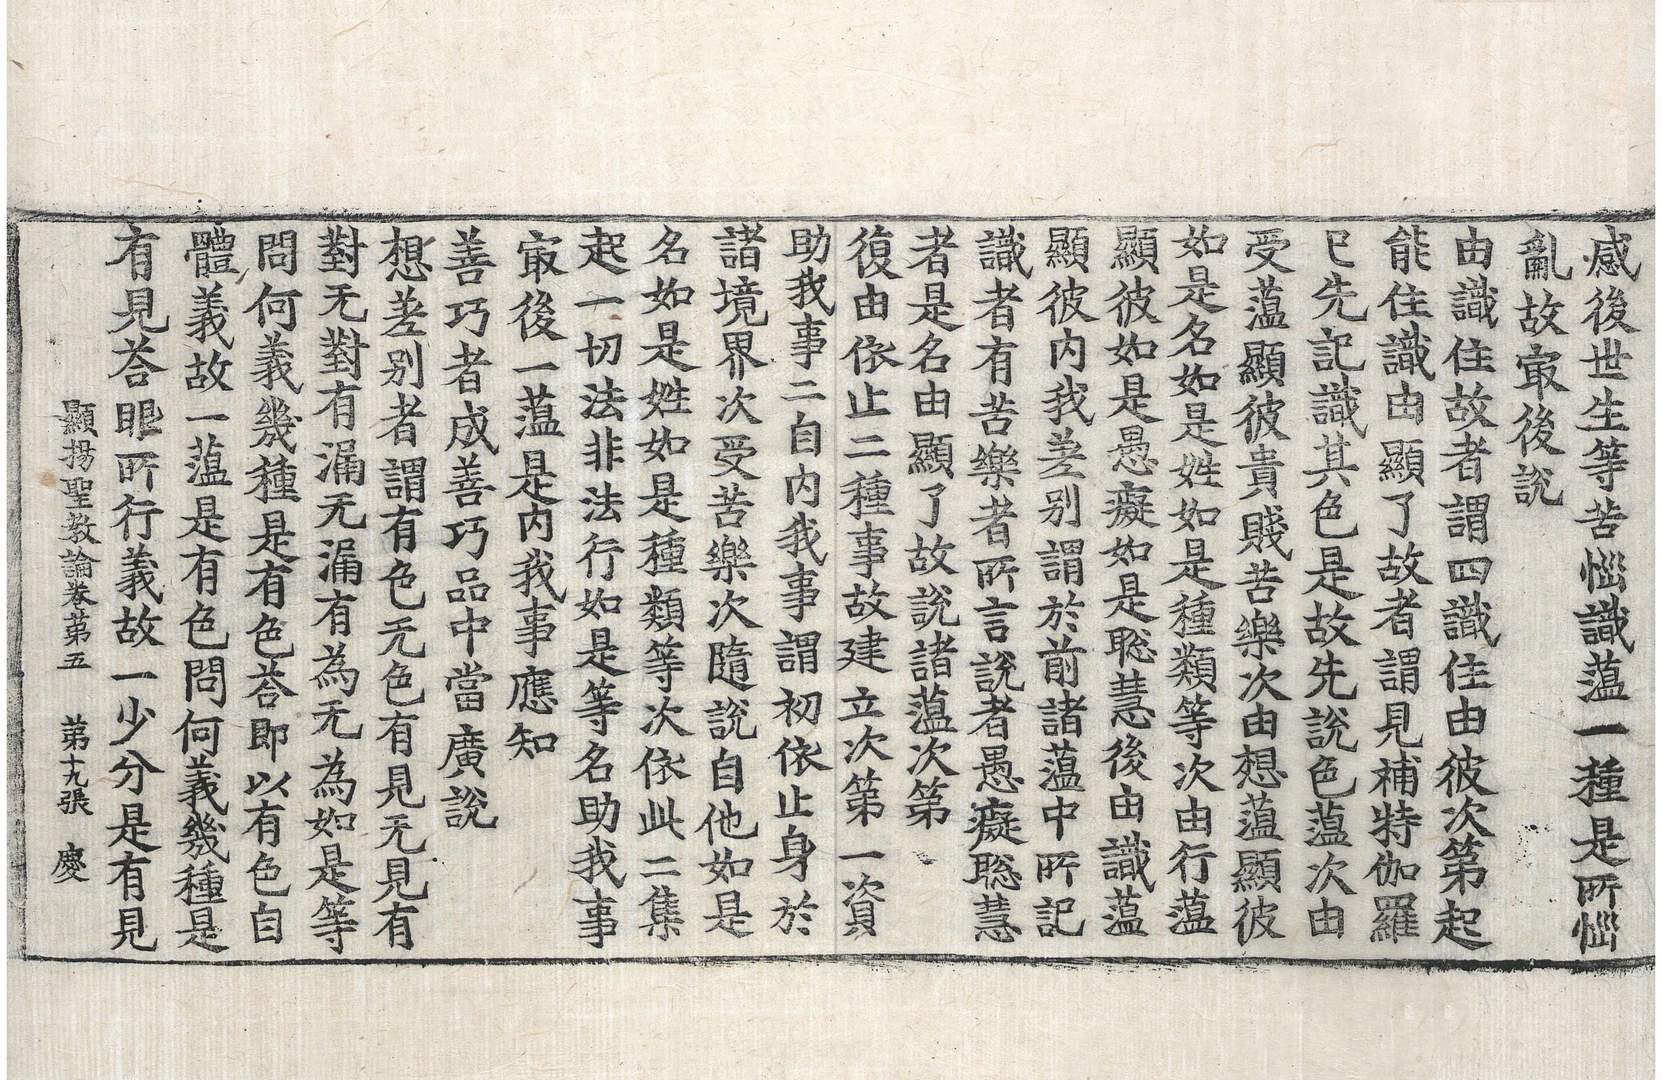 感後世生等苦惱識蘊一種是所惱
亂故㝡後說
由識住故者謂四識住由彼次第起
能住識由顯了故者謂見補特伽羅
已先記識其色是故先說色蘊次由
受蘊顯彼貴賤苦樂次由想蘊顯彼
如是名如是姓如是種類等次由行蘊
顯彼如是愚癡如是聦慧後由識蘊
顯彼內我差別謂於前諸蘊中所記
識者有苦樂者所言說者愚癡聦慧
者是名由顯了故說諸蘊次第
復由依止二種事故建立次第一資
助我事二自內我事謂初依止身於
諸境界次受苦樂次隨說自他如是
名如是姓如是種類等次依此二集
起一切法非法行如是等名助我事
㝡後一蘊是內我事應知
善巧者成善巧品中當廣說
想差別者謂有色无色有見无見有
對无對有漏无漏有為无為如是等
問何義幾種是有色荅即以有色自
體義故一蘊是有色問何義幾種是
有見荅眼所行義故一少分是有見
顯揚聖教論卷第五　第十九張　慶